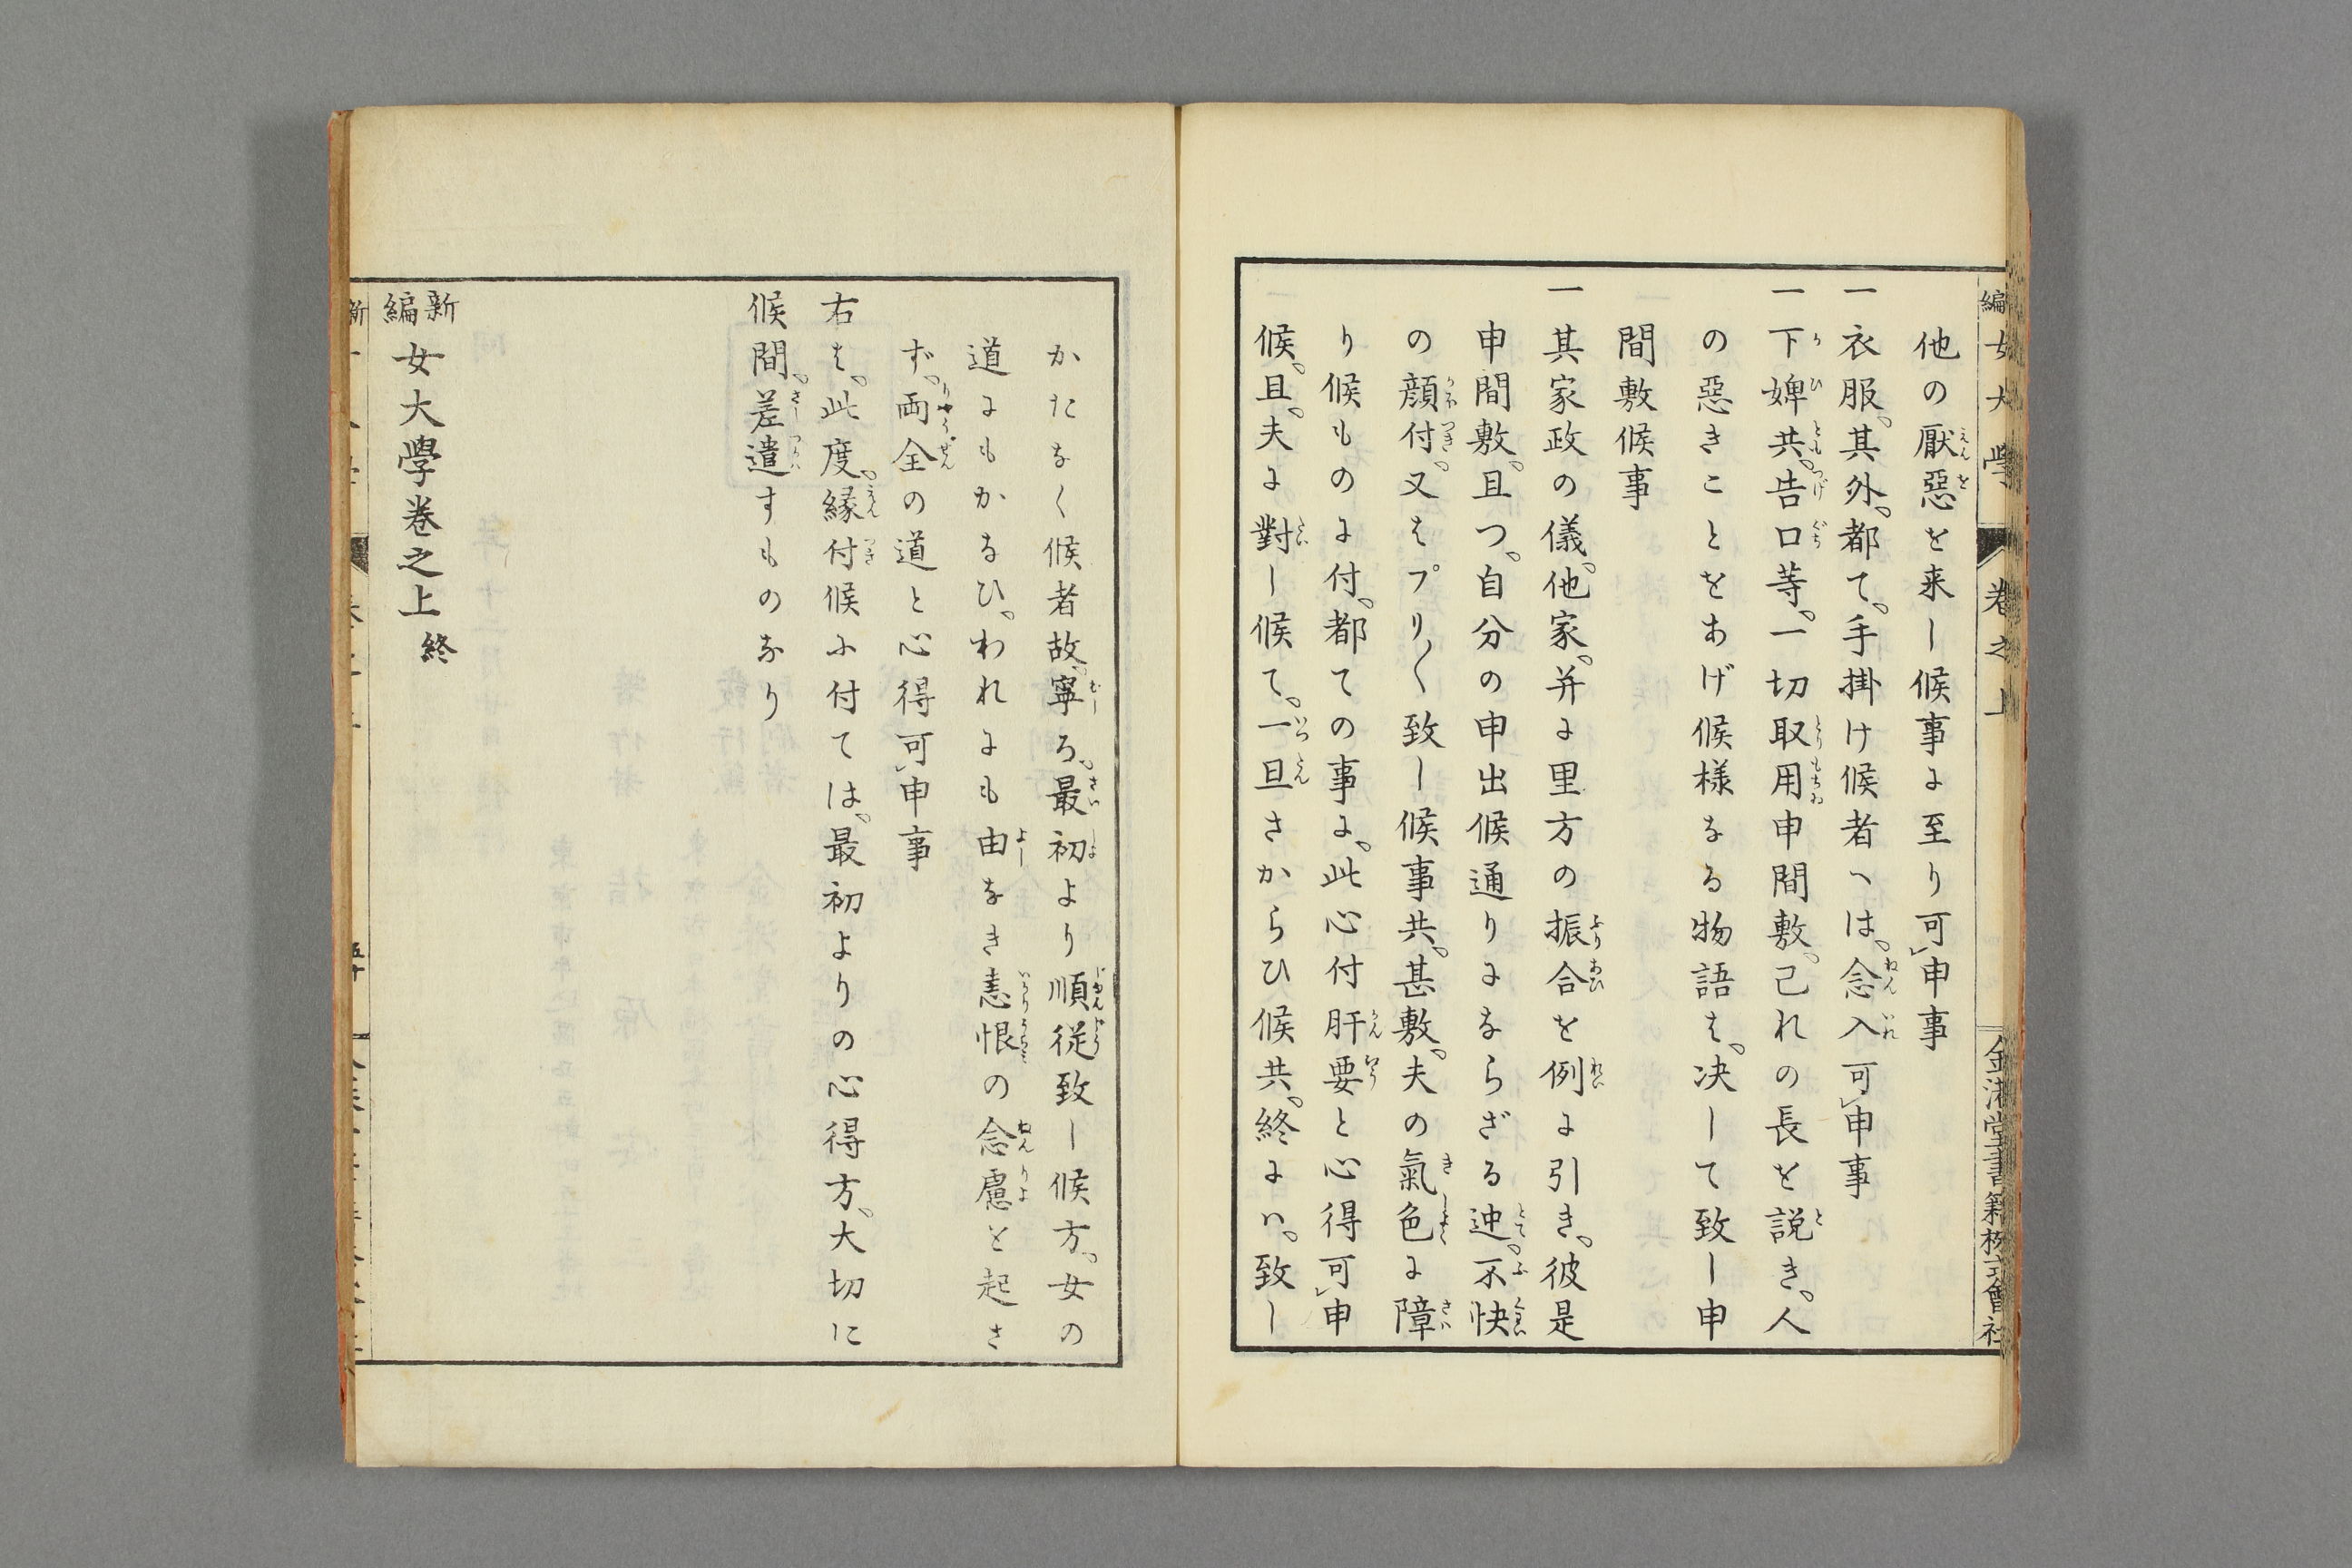 他の厭惡を来し候事に至り可申事
一衣服。其外。都て。手掛け候者へは。念入可申事
一下婢共。告口等。一切取用申間敷。己れの長を説き。人
の惡きことをあげ候様なる物語は。决して致し申
間敷候事
一其家政の儀。他家。并に里方の振合を例に引き。彼是
申間敷。且つ。自分の申出候通りにならざる迚。不快
の顔付。又はプリ〱致し候事共。甚敷。夫の氣色に障
り候ものに付。都ての事に。此心付肝要と心得可申
候。且。夫に對し候て。一旦さからひ候共。終には。致し
かたなく候者故。寧ろ。最初より順従致し候方。女の
道にもかなひ。われにも由なき恚恨の念慮を起さ
ず。両全の道と心得可申事
右は。此度。縁付候ふ付ては。最初よりの心得方。大切に
候間。差遣すものなり
新編女大學卷之上終
編女大學 卷之上 金港堂書籍株式會社